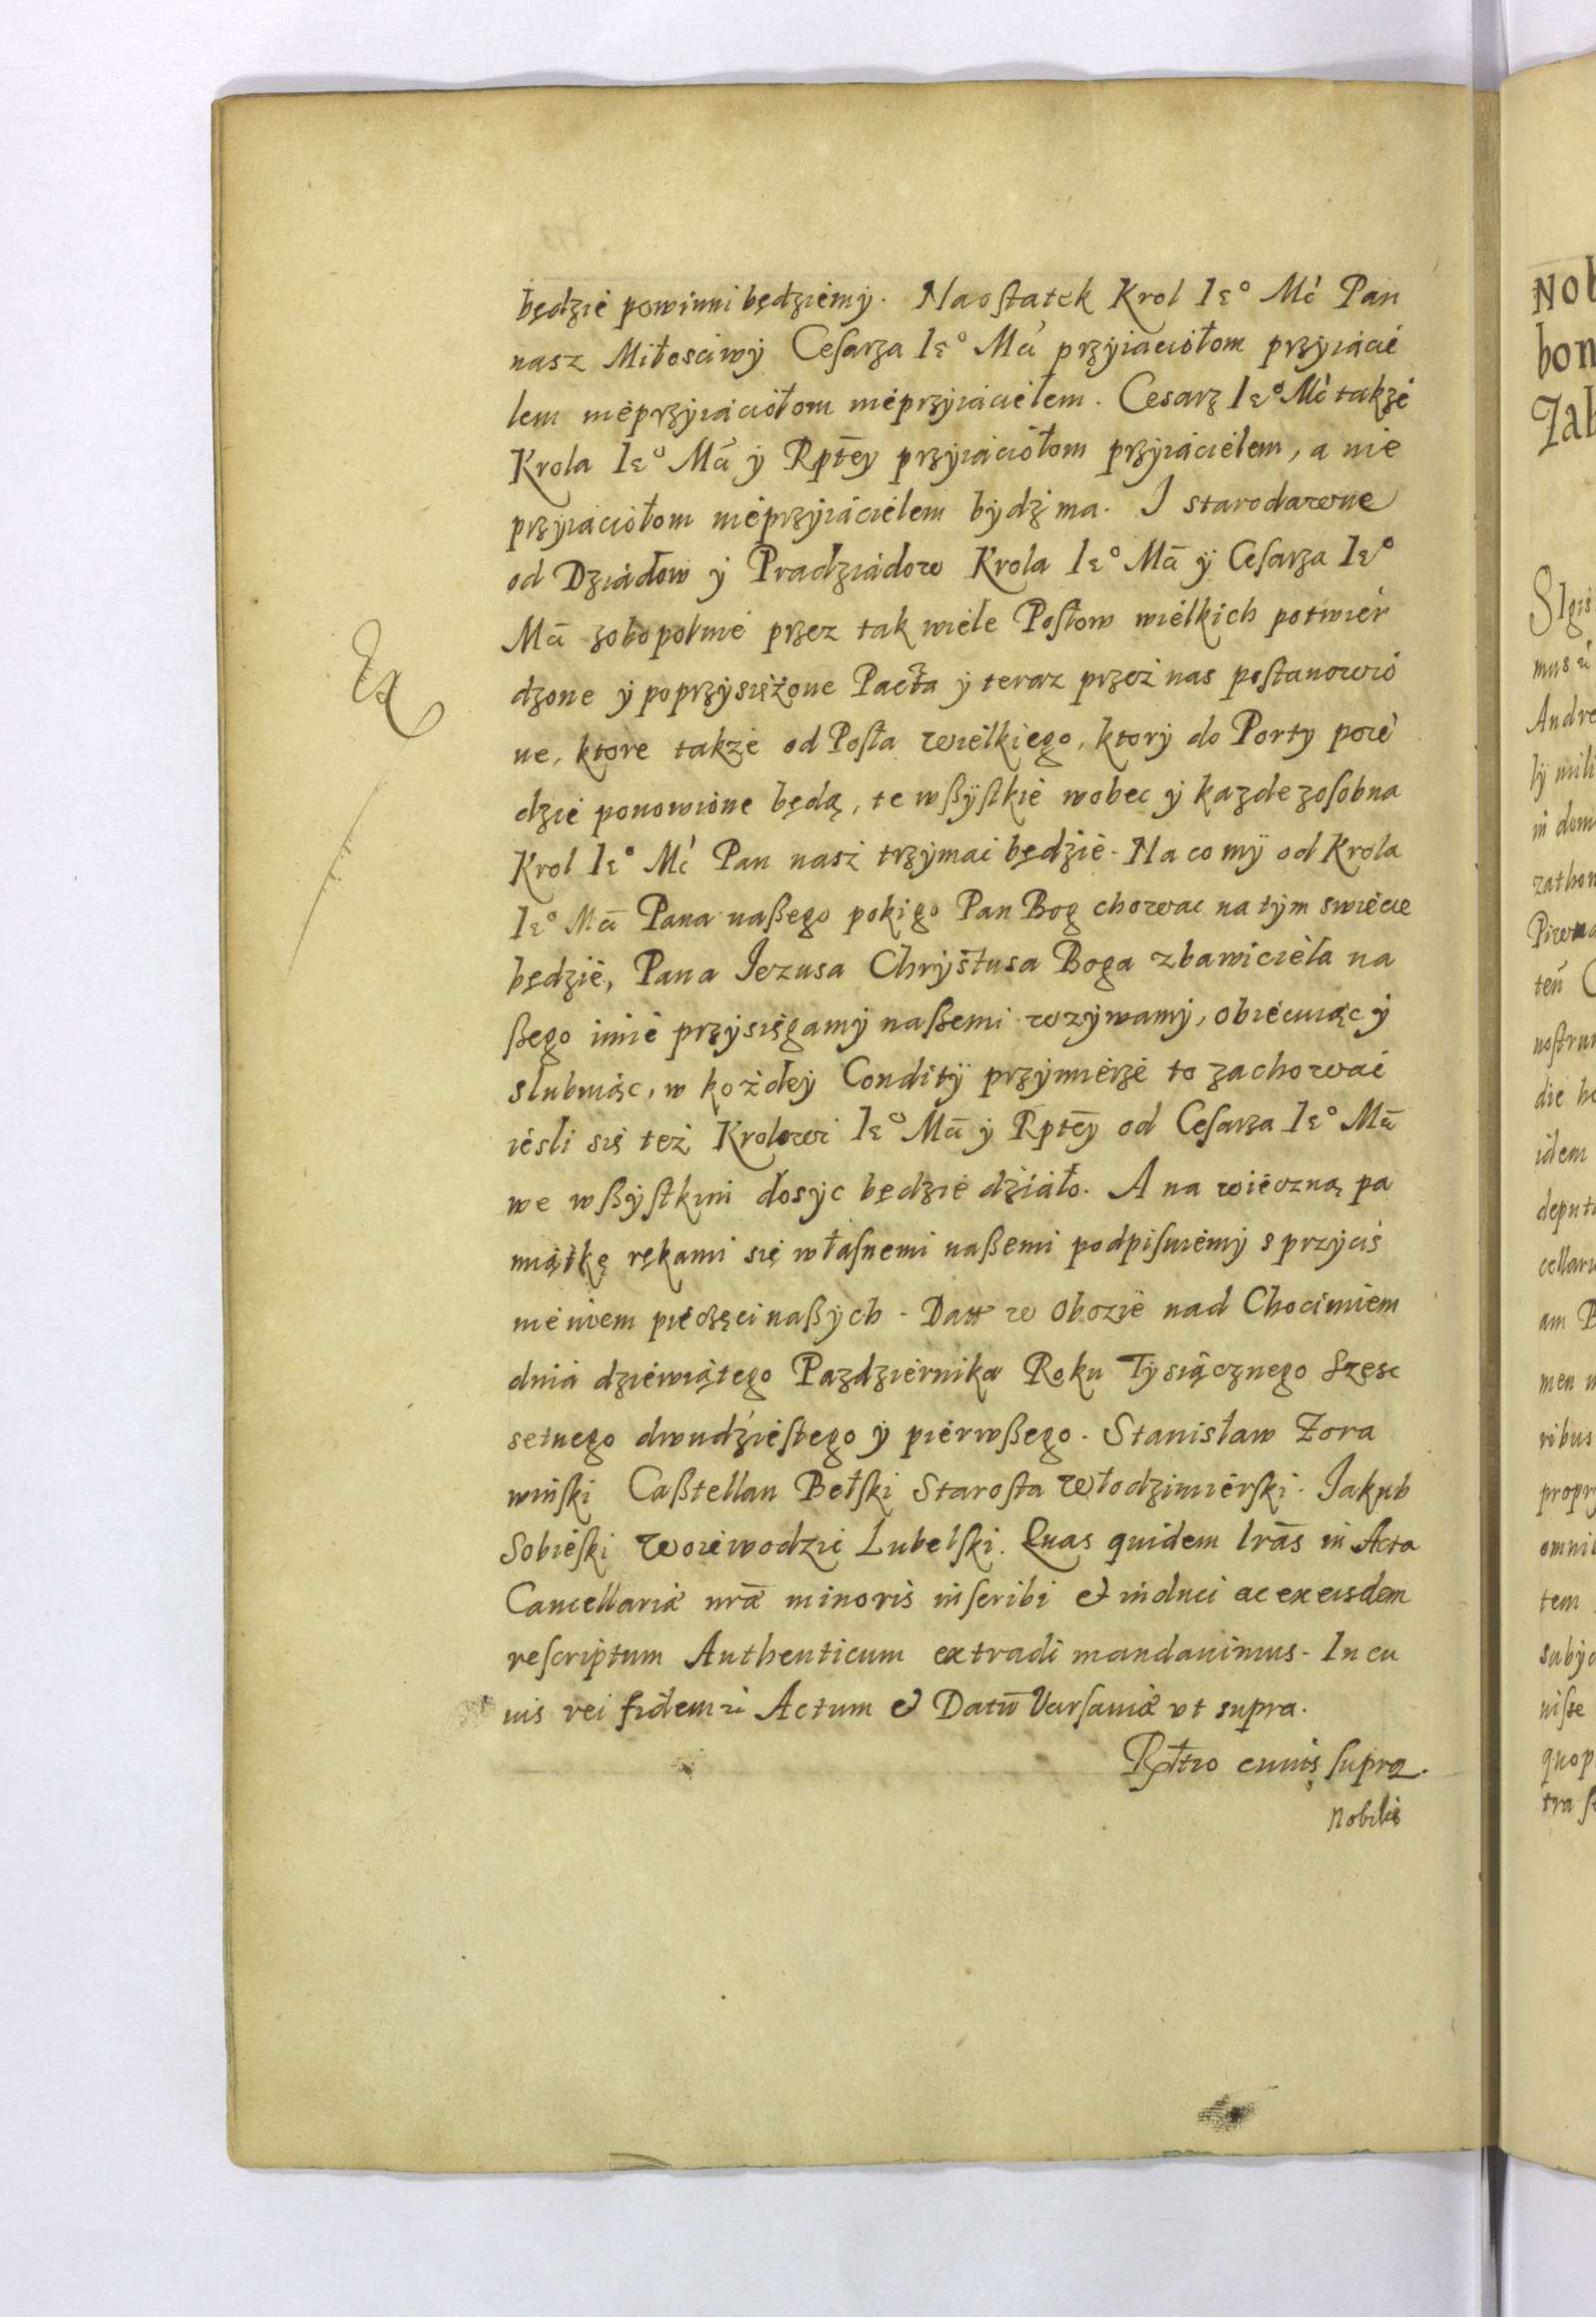 będzie powinni będziemy. Naostatek Krol Ieº Mć Pan
nasz Miłosciwy Cesarza Ieº Mći przyiaciółom przyiacie
lem nieprzyiaciółom nieprzyiacielem. Cesarz Ieº Mć takze
Krola Ieº Mći y Rptey przyiaciółom przyiacielem, a nie
przyiaciółom nieprzyiacielem bydz ma. I starodawne
od Dziadow y Pradziadow Krola Ieº Mći y Cesarza Ieº
Mći zobopolnie przez tak wiele Posłow wielkich potwier
dzone y poprzysiężone Pacta y teraz przez nas postanowio
ne, ktore takze od Posła wielkiego, ktory do Porty poie
dzie ponowione będą, te wßystkie wobec y kazde zosobna
Krol Ieº Mć Pan nasz trzymac będzie. Na co my od Krola
Ieº Mći Pana naßego poki go Pan Bog chowac na tym swiecie
będzie, Pana Iezusa Chrystusa Boga zbawiciela na
ßego imie przysięgamy naßemi wzywamy, obiecuiąc y
slubuiąc, w kożdey Condity przymierze to zachowac
iesli się też Krolowi Ieº Mći y Rptey od Cesarza Ieº Mći
we wßystkim dosyc będzie działo. A na wieczną pa
miątkę rękami się własnemi naßemi podpisuiemy s przycis
nieniem pieczęci naßych. Datt w Obozie nad Chocimiem
dnia dziewiątego Pazdziernika Roku Tysiącznego Szesc
setnego dwudziestego y pierwßego. Stanisław Zora
winski Caßtellan Bełski Starosta Włodzimierski. Jakub
Sobieski Woiewodzic Lubelski. Quas quidem lrãs in Acta
Cancellariæ nræ minoris inscribi et induci ac ex eisdem
rescriptum Authenticum extradi mandauimus. In cu
ius rei fidem Actum et Datũ Varsauiæ vt supra.
supra.
Nobilis
Ex
Nob
bon
Zak
Sigis
mus
Andre
ly mili
in dom
zathon
ten
nostrum
die
idem
deput
cellari
am
men
ribus
propr
omni
tem
nisse
quop
tra